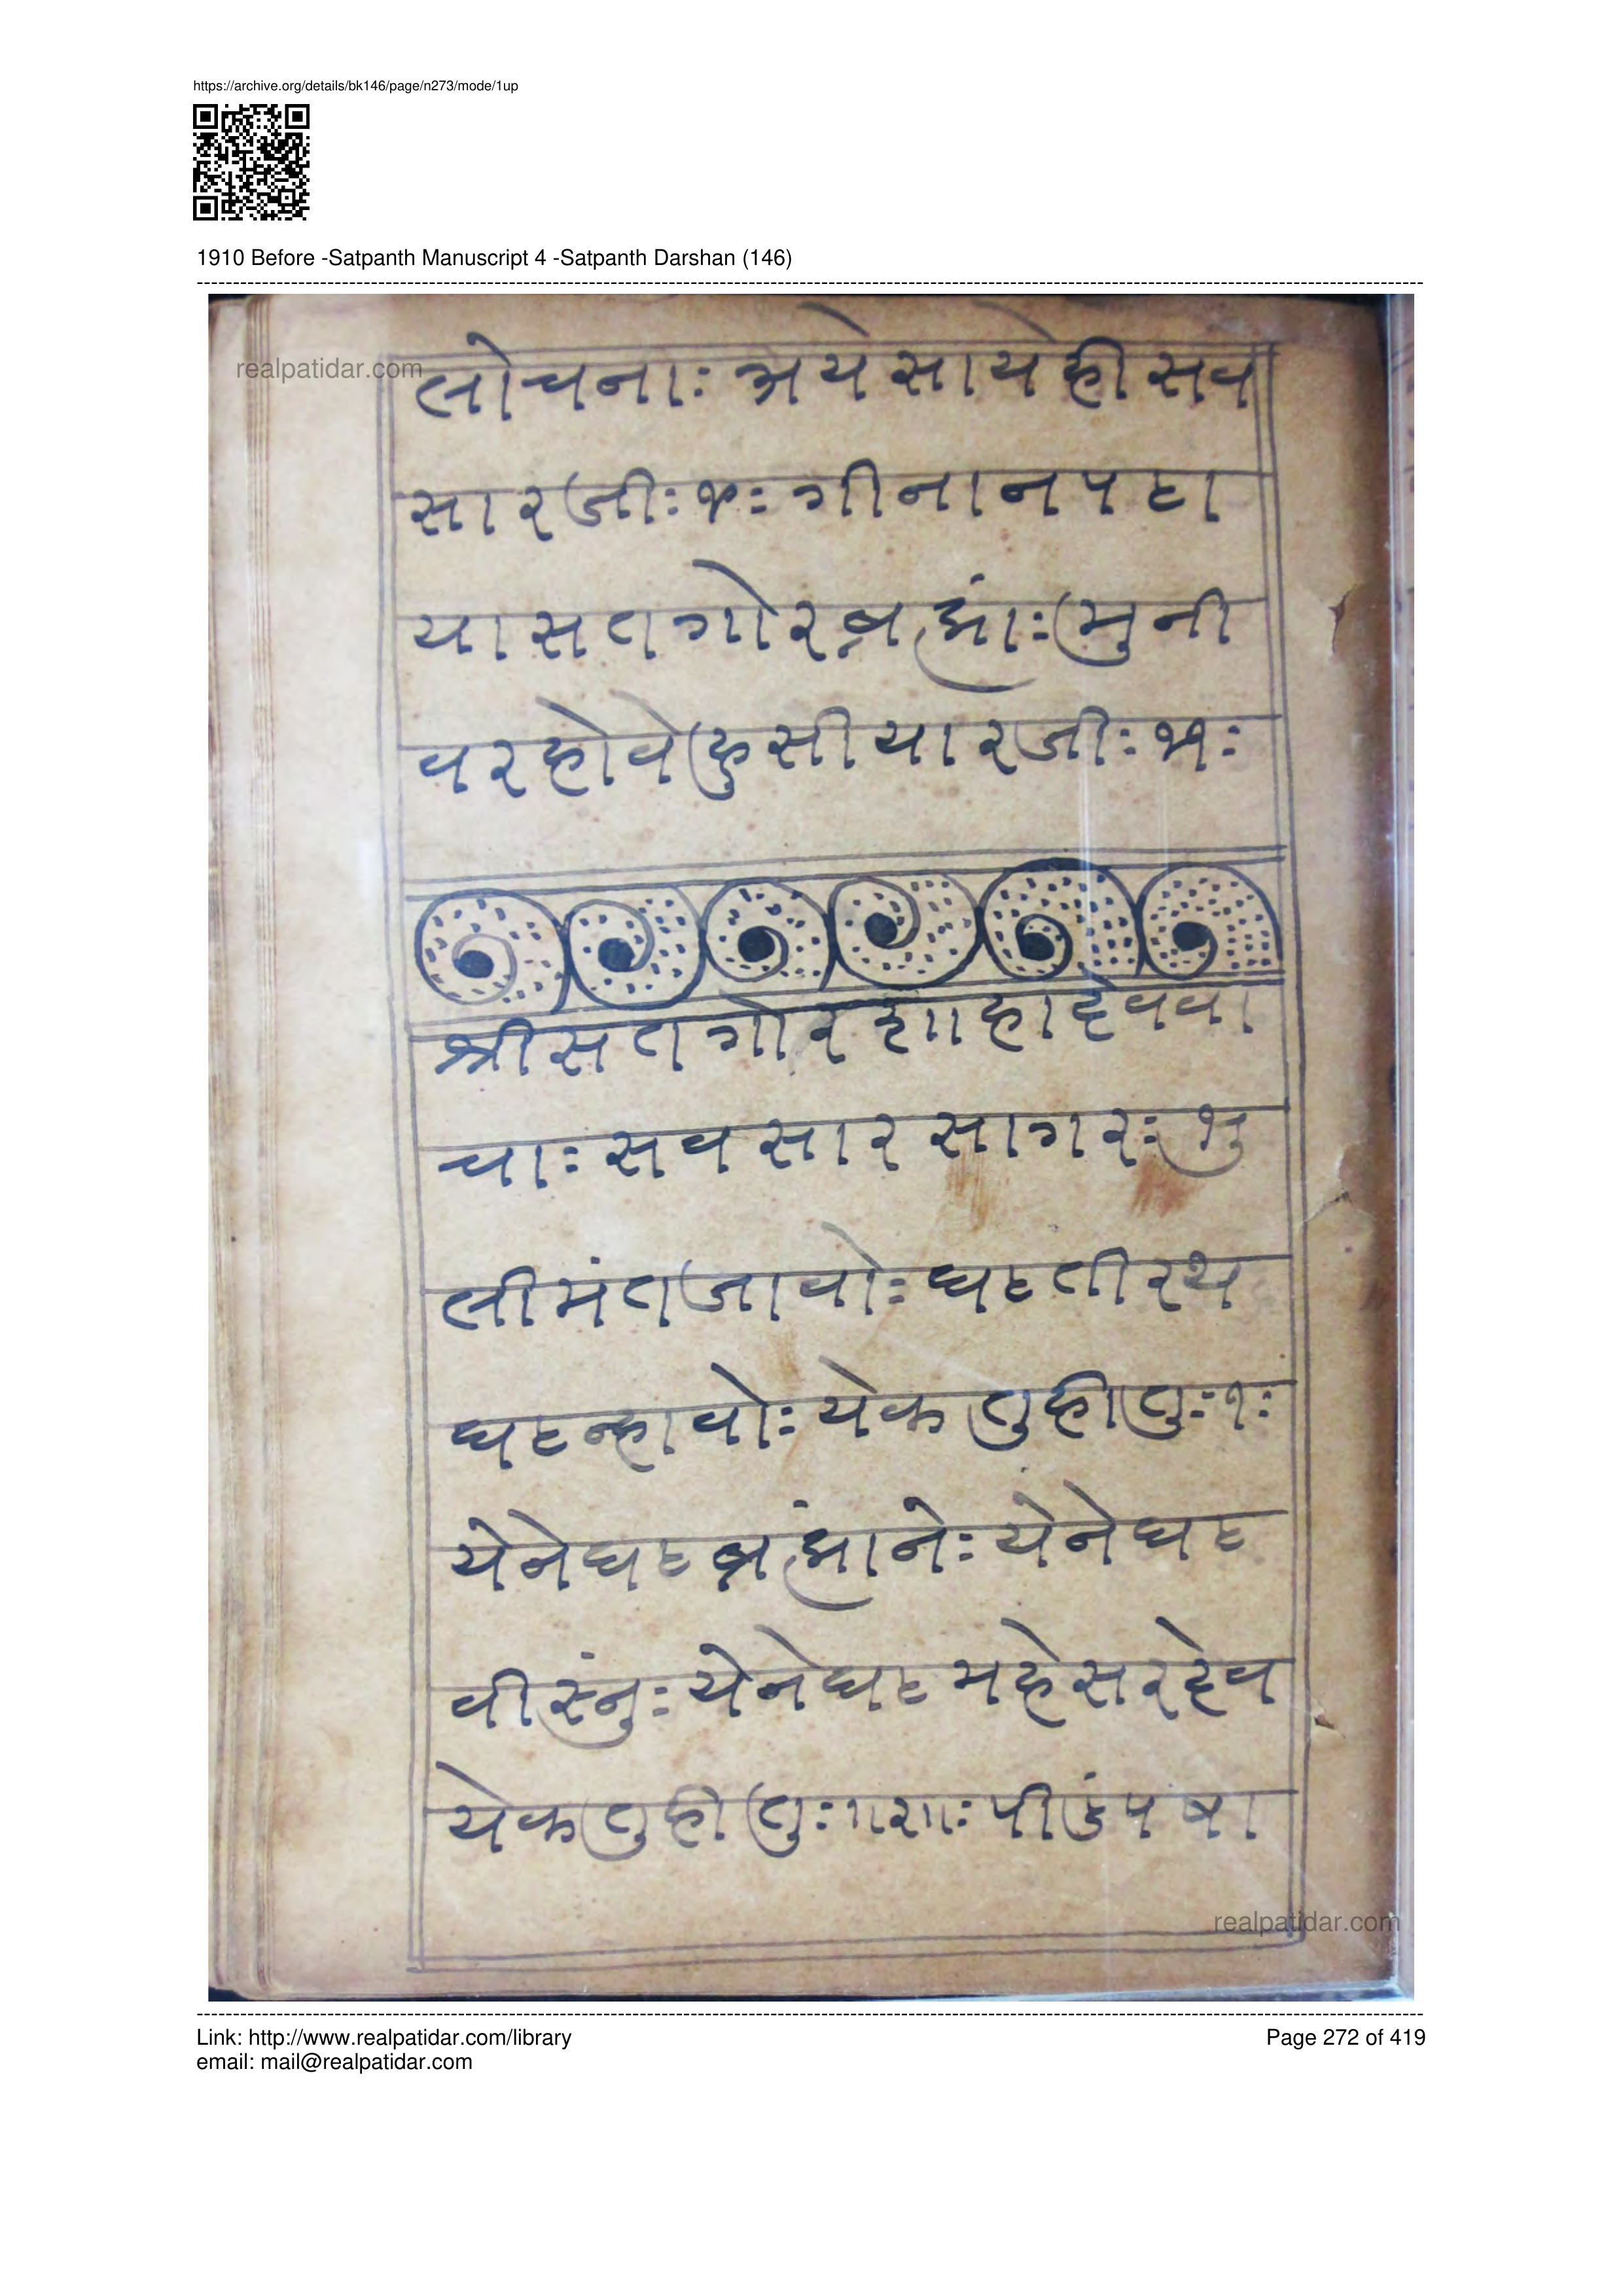 https://archive.org/details/bk146/page/n273/mode/1up
1910 Before -Satpanth Manuscript 4 -Satpanth Darshan (146)
realpatidar.com
लोचनाः अयेसायेहीसव
सारजीः५०ः गीनानपढा
यासतगोरब्रह्मांः मुनी
वरहोवेहुसीयारजीः५१ः
श्रीसतगोरशाहादेववा
चाः सवसारसागरः भु
लीमंतजावोः घटतीरथ
घटन्हावोः येकतुहीतुः१ः
येनेघटब्रह्मांनेः येनेघट
वीस्नुंः येनेघटमहेसरदेव
येकतुहीतुः॥२॥ः पीडंपषा
realpatidar.com
Link: http://www.realpatidar.com/library
Page 272 of 419
email: mail@realpatidar.com